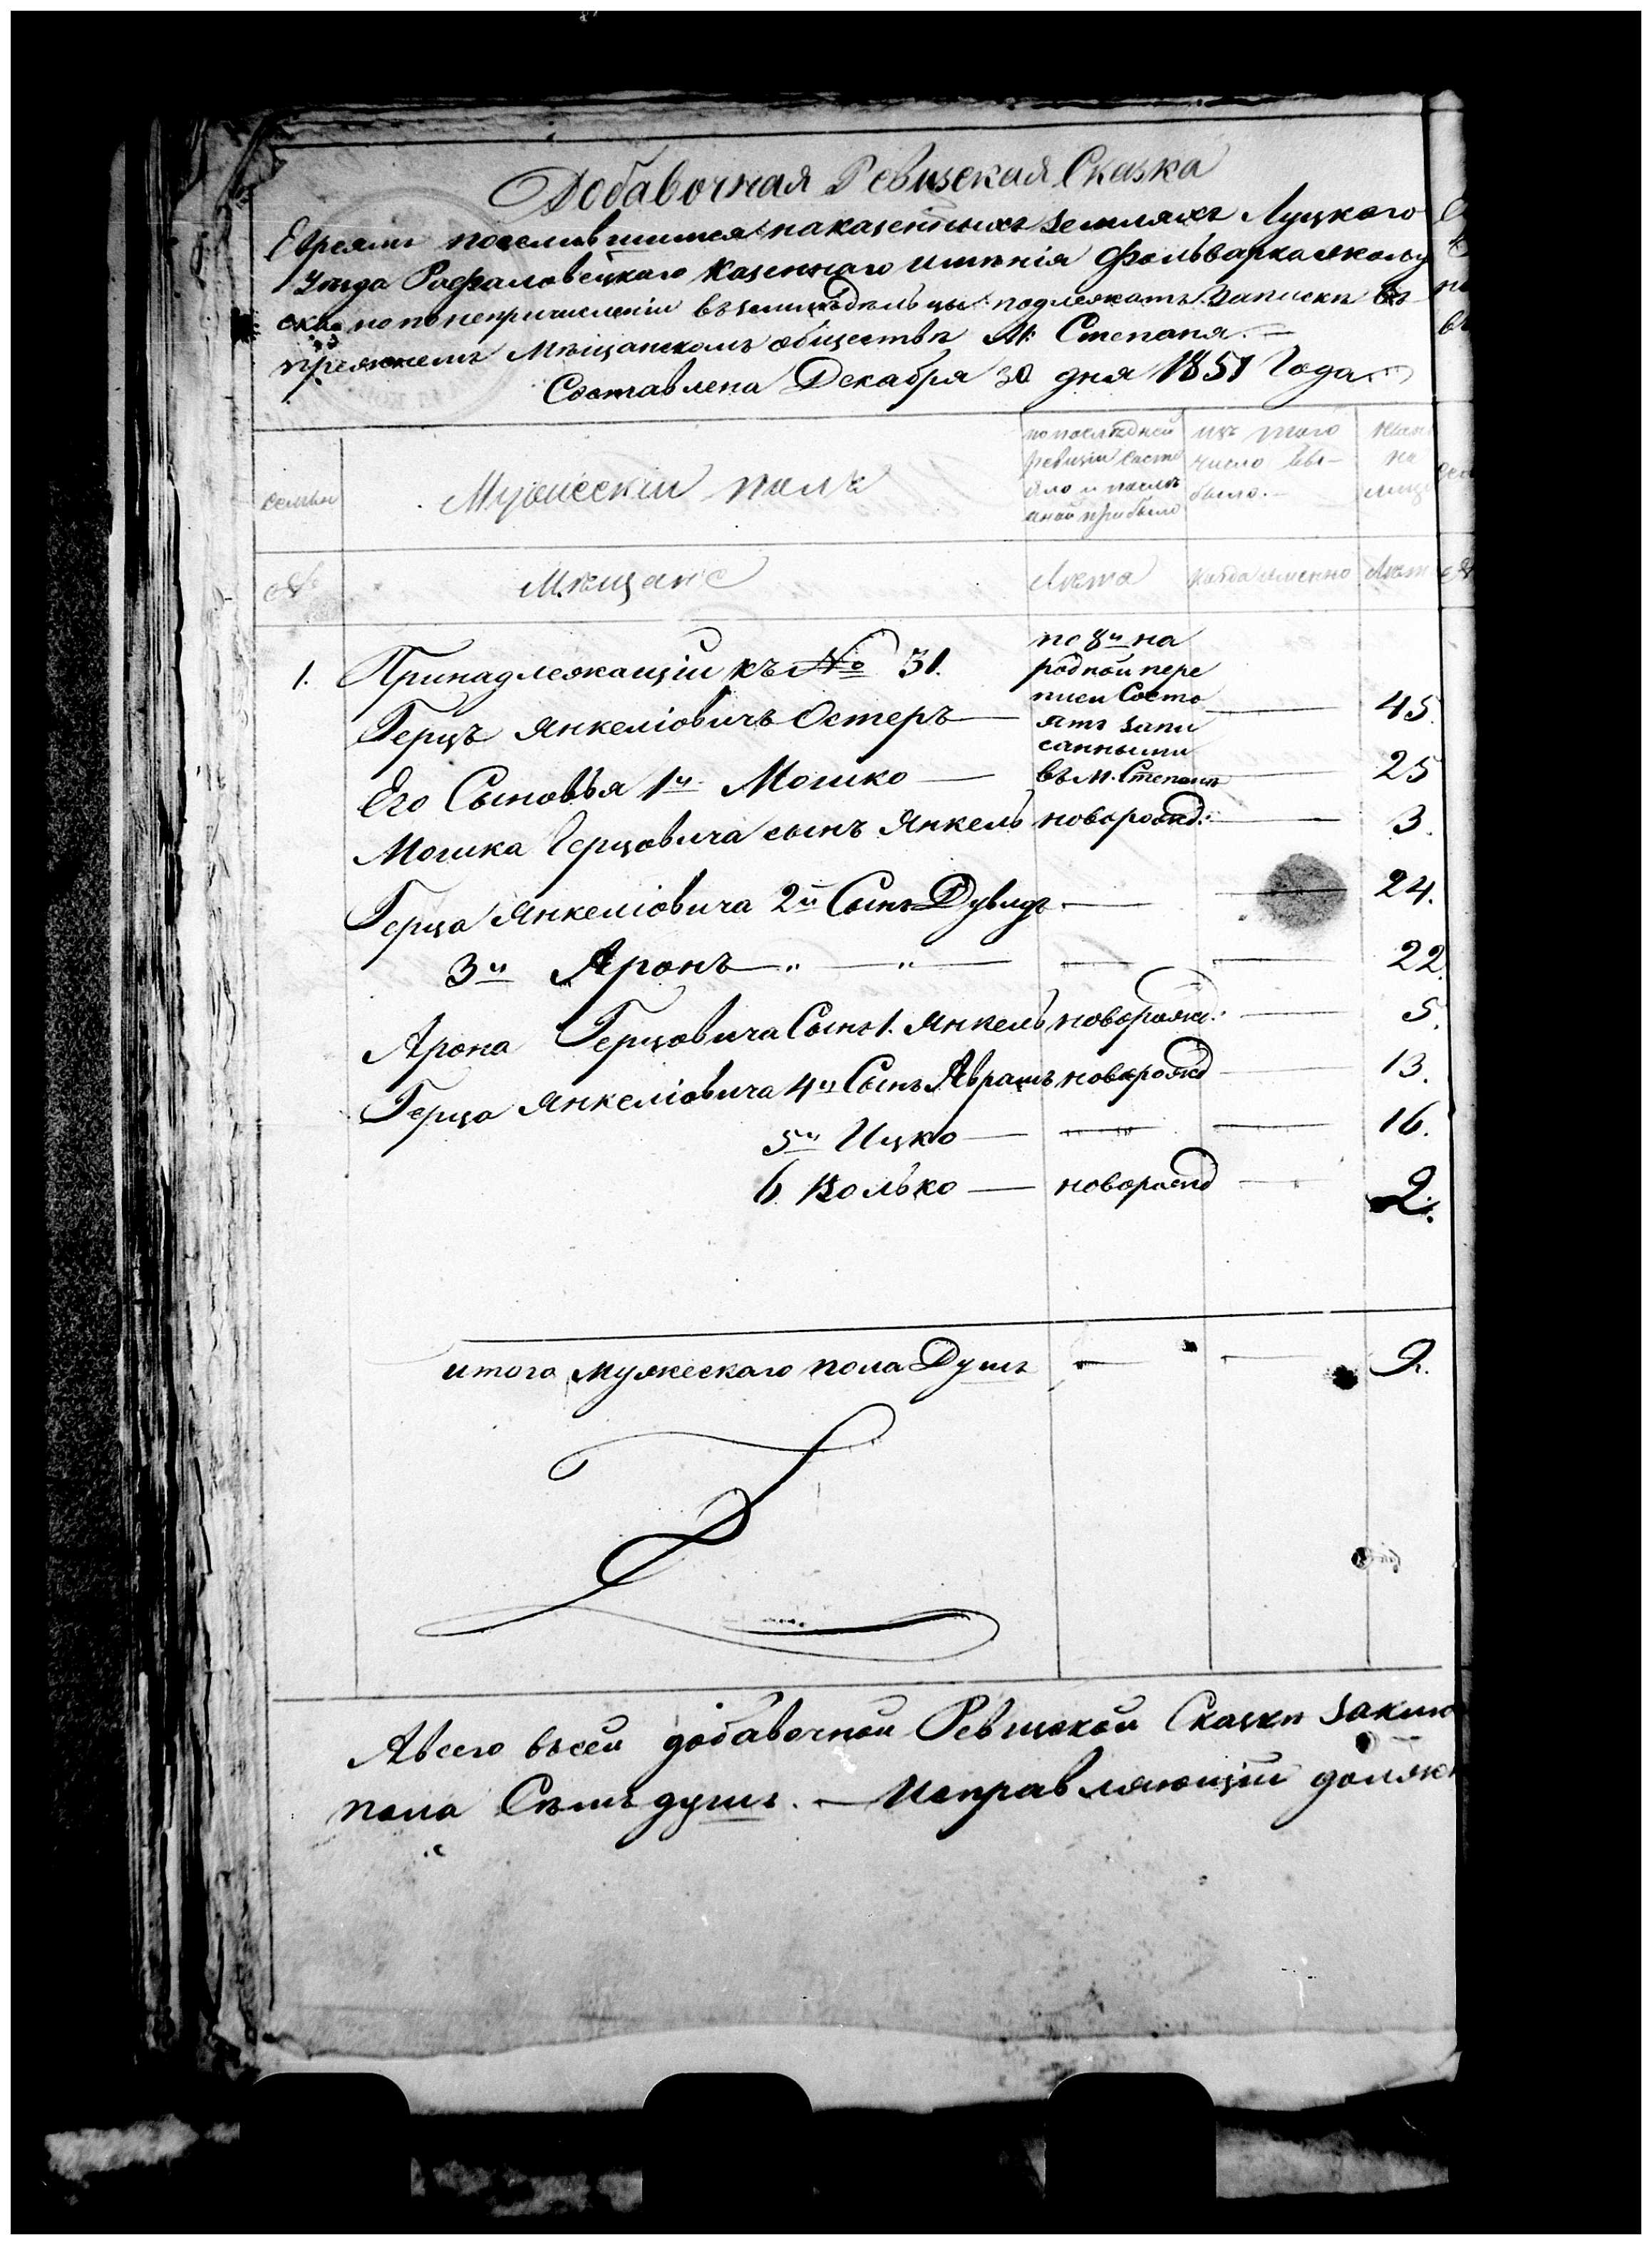 Добавочная Ревизская Сказка
Евреямъ поселившимся на казенныхъ земляхъ Луцкого
Уезда Рафаловецкаго казеннаго имѣнія
но по непричисленіи въ земледѣльцы подлежатъ записки въ
прежнемъ Мѣщанскомъ обществѣ М. Степаня. —
Составлена Декабря 30 дня 1851 Года
семьи
Мужескій полъ
по послѣдней
ревизіи состо
яло и послѣ
оной прибыло
изъ того
число вы-
было. —
на
№
Мѣщане
Лѣта
Когда именно
Лѣт
1. Принадлежащіи къ № 31.
по 8й на
родной пере
писи Состо
ятъ запи
санными
въ м. Степанѣ
Герцъ Янкеліовичъ Остеръ — 45.
Его Сыновья 1й Мошко — 25
Мошка Герцовича сынъ Янкель новорожд: — 3.
Герца Янкеліовича 2й Сынъ Дувидъ — 24.
3й Аронъ — „ — „ — 22.
Арона Герцовича Сынъ 1. Янкель новорожд: — 5.
Герца Янкеліовича 4й Сынъ Аврамъ новорожд — 13.
5й Ицко — 16.
6 Волько — новорожд — 2.
итого мужескаго пола Душъ — 9.
А всего въ сей добавочной Ревизской Сказкѣ заклю
пола Сѣмь душъ. — Исправляющій должн